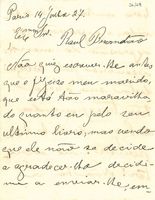 Paris 14 Julho 27.
Raul Brandão
Não quiz escrever-lhe antes
que o fizesse meu marido,
que está tão maravilha
do quanto eu pelo seu
ultimo livro, mas vendo
que elle não se decide
a agradecer-lho decidi-
me a enviar-lhe em